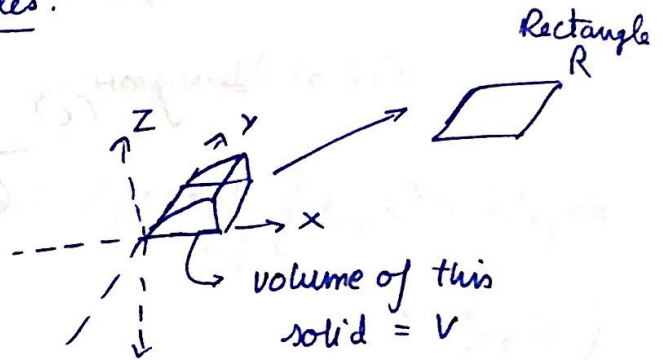 Rectangle
R
Z
Y
X
volume of this
solid = V